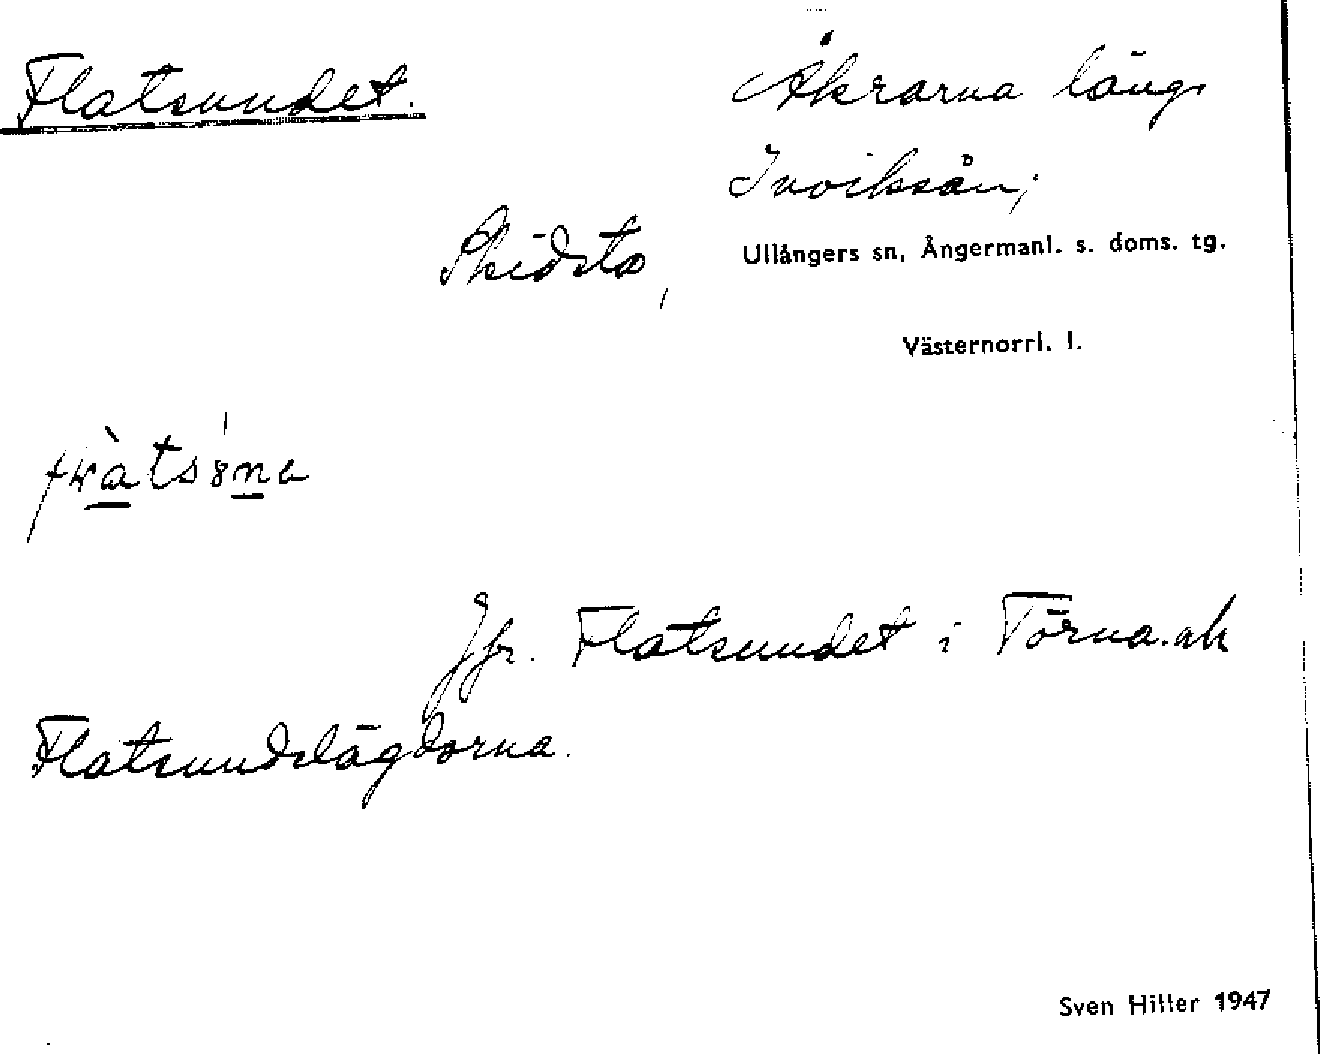 Flatsundet.
Åkrarna längs
Inviksån;
Skidsta,
Ullångers sn, Ångermanl. s. doms. tg.
Västernorrl. l.
Jfr. Flatsundet i Törna. ok
Flatsundslägdorna.
Sven Hiller 1947